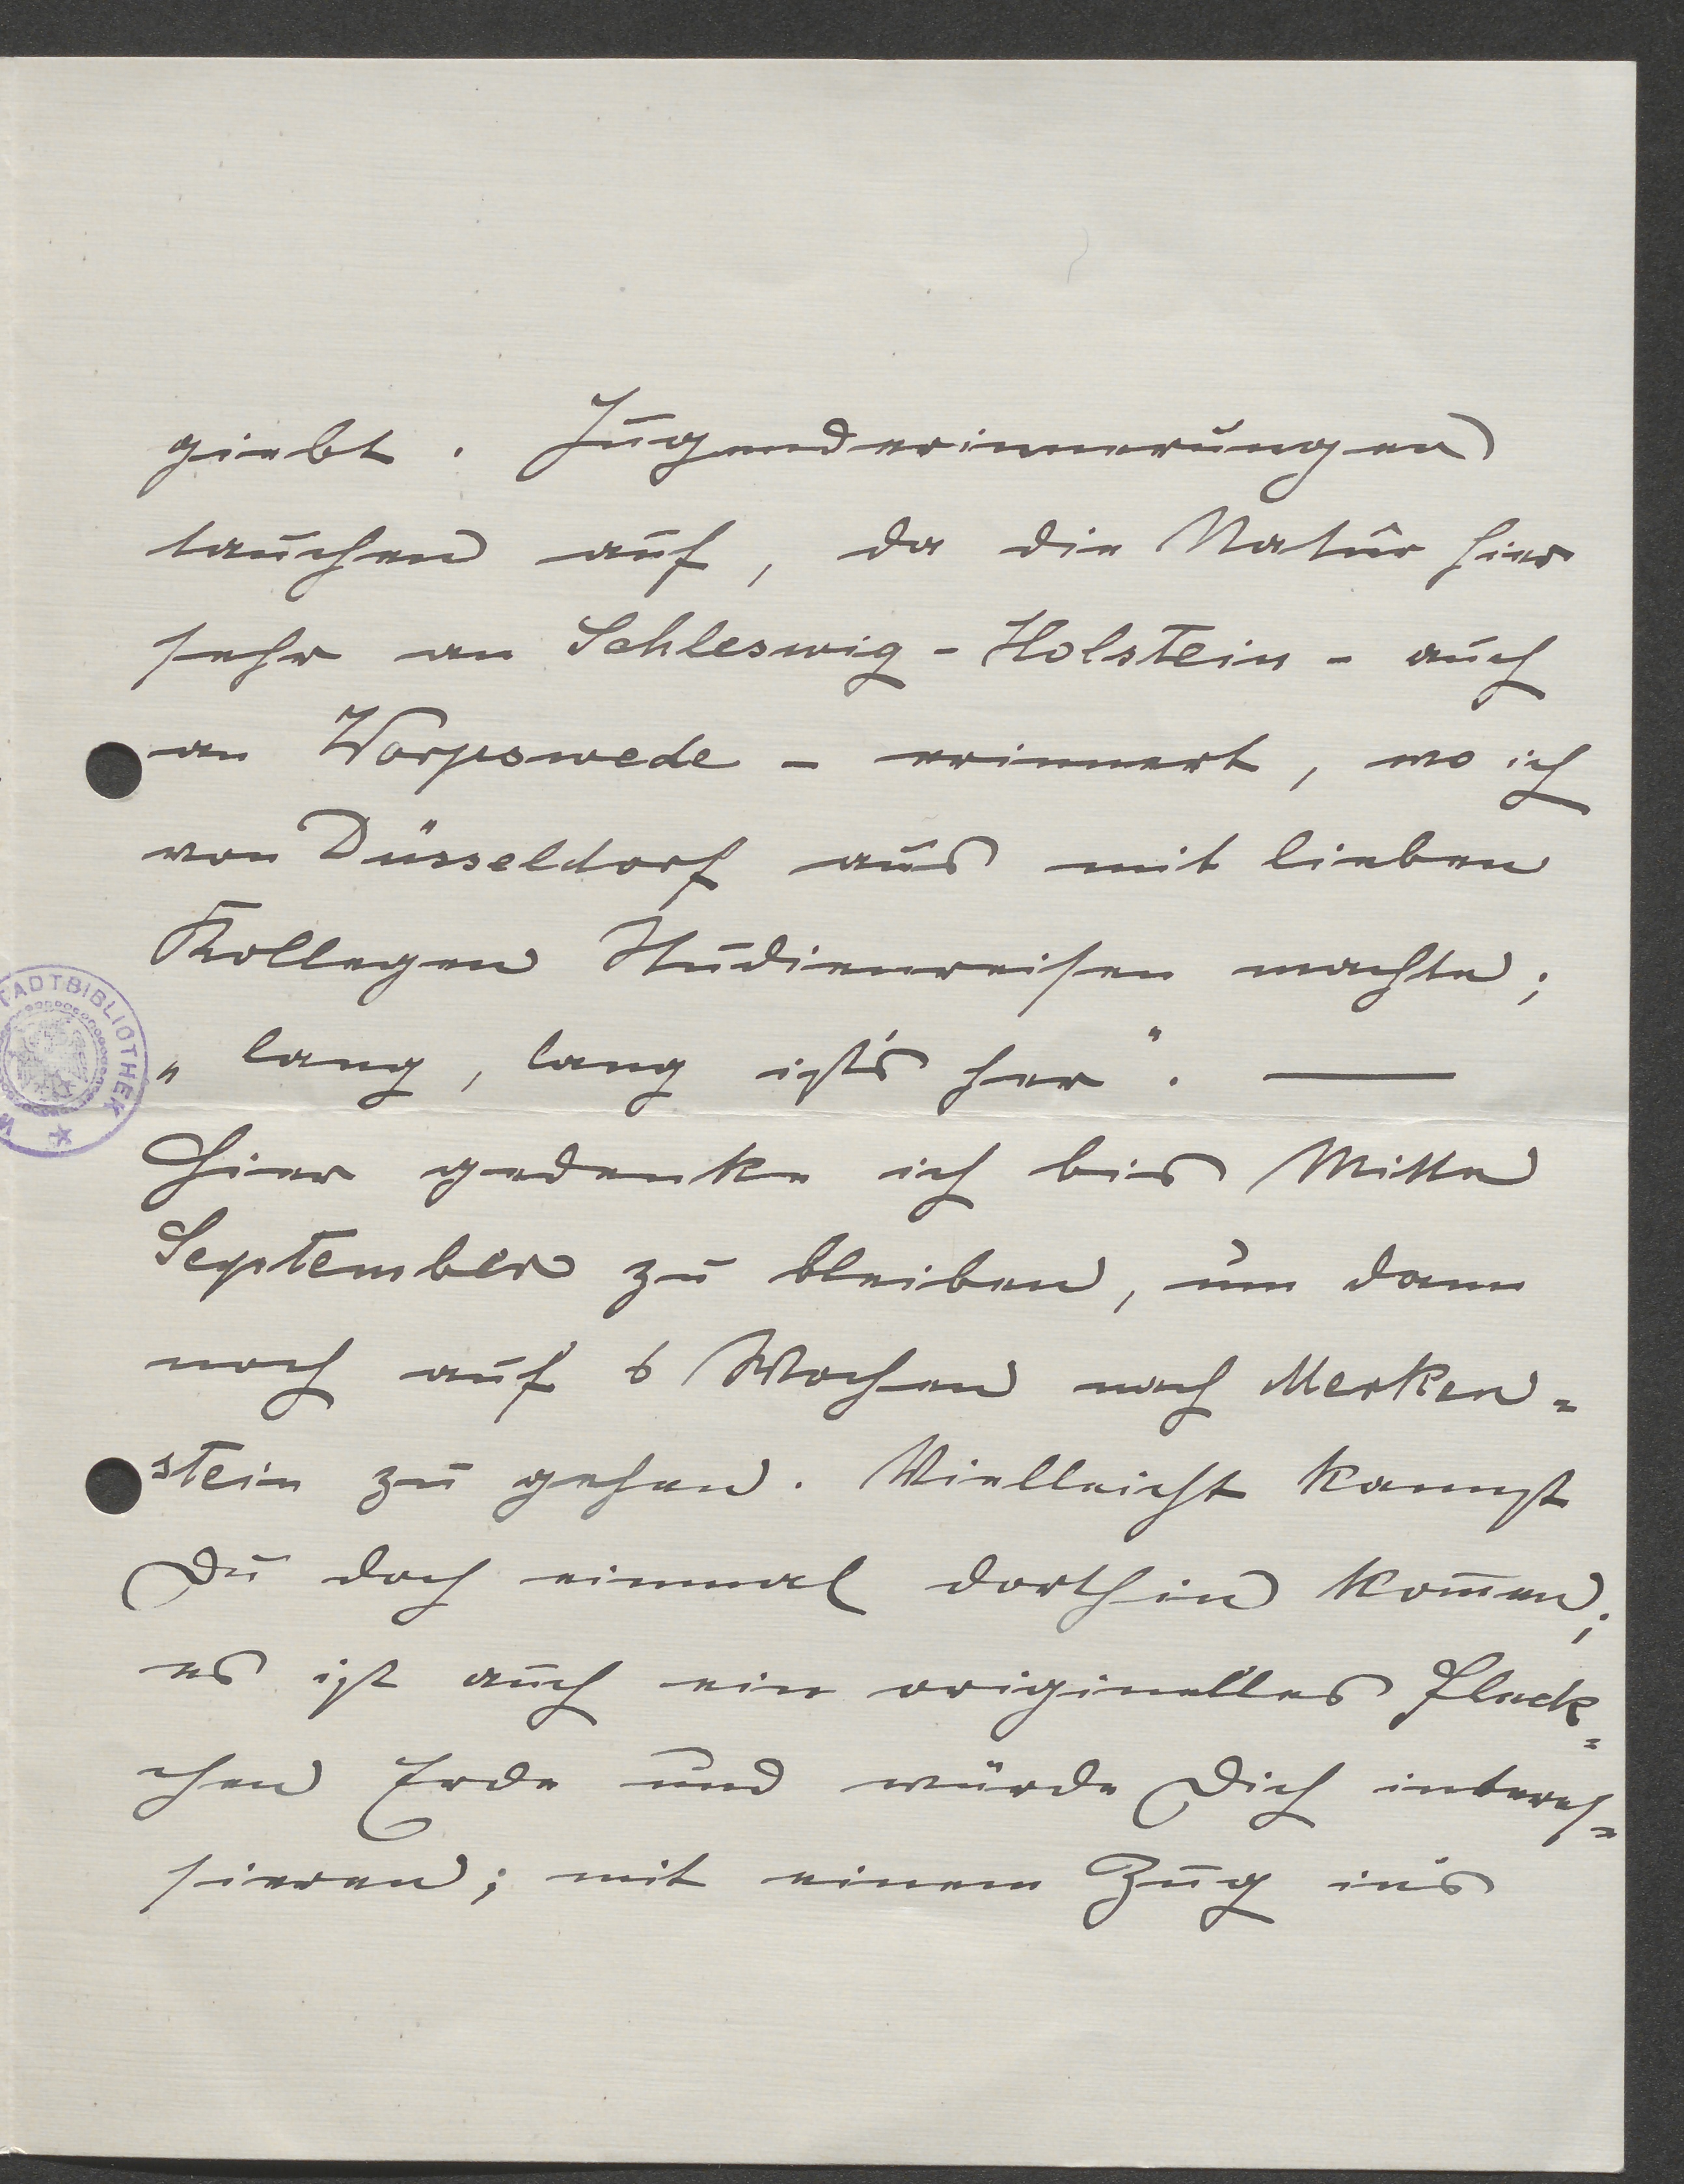 giebt. Jugenderinnerungen
tauchen auf, da die Natur hier
sehr an Schleswig-Holstein - auch
an Worpswede - erinnert, wo ich
von Düsseldorf aus mit lieben
Kollegen Studienreisen machte;
„lang, lang ist's her“. —
Hier gedenke ich bis Mitte
September zu bleiben, um dann
noch auf 6 Wochen nach Merken=
stein zu gehen. Vielleicht kannst
Du doch einmal dorthin kom̅en;
es ist auch ein originelles Fleck=
chen Erde und würde Dich interes=
sieren; mit einem Zug in's
STADTBIBLIOTHEK